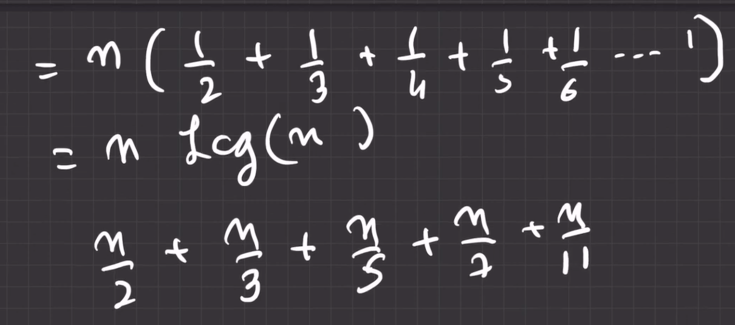 = n ( 1/2 + 1/3 + 1/4 + 1/5 + 1/6 --- 1 )
= n Log(n)
n/2 + n/3 + n/5 + n/7 + n/11